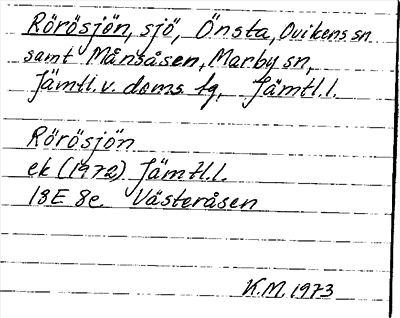 Rörösjön, sjö, Önsta, Ovikens sn
samt Månsåsen, Marby sn,
Jämtl.v. doms tg, Jämtl.l.
Rörösjön
ek (1972) Jämtl.l.
18E 8e. Västeråsen
K.M. 1973